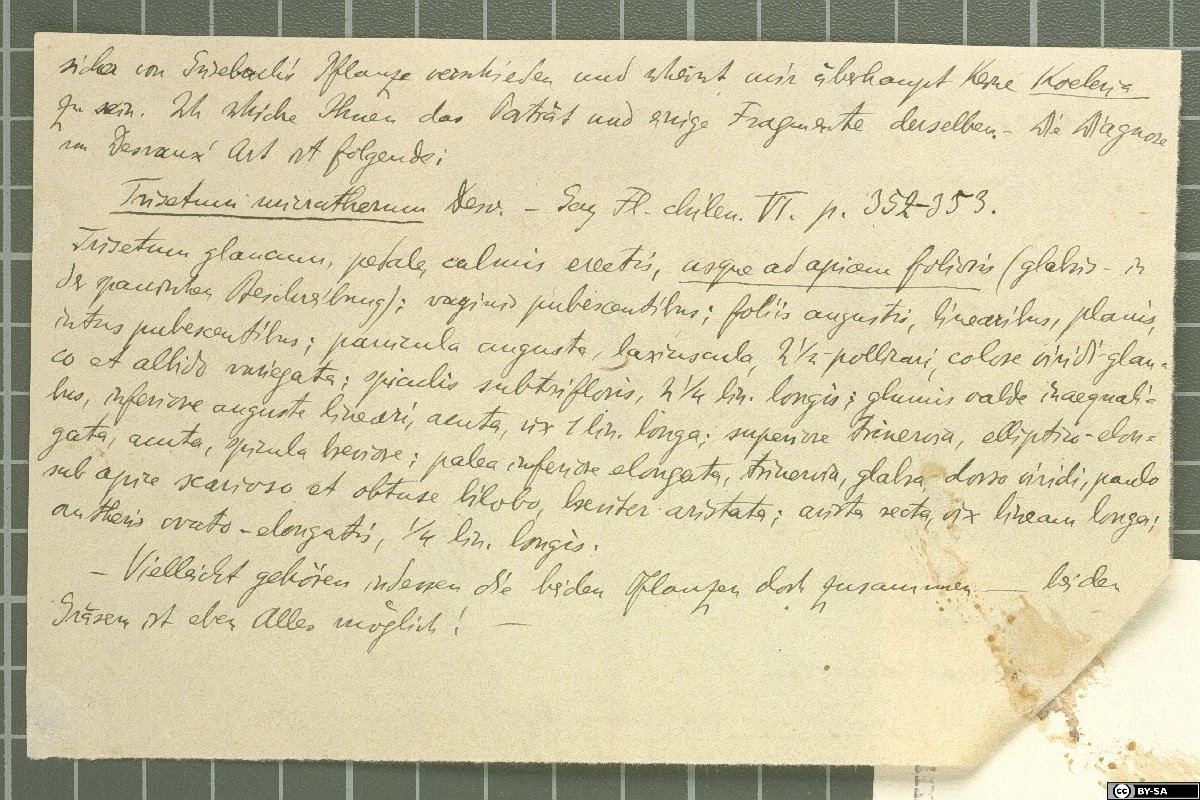 sicher von Grisebachs Pflanze verschieden und scheint mir überhaupt keine Koeleria
zu sein. Ich schicke Ihnen das Porträt und einige Fragmente derselben. – Die Diagnose
von Desvaux' Art ist folgende:
Trisetum micratherum Desv. – Gay Fl. chilen. VI. p. 352–353.
Trisetum glaucum, culmis erectis, usque ad apicem foliosis (glabris – in
der spanischen Beschreibung); vaginis pubescentibus; foliis angustis, linearibus, planis,
intus pubescentibus; panicula angusta, laxiuscula, 2½ pollicari, colore viridi-glau-
co et albido variegata; spiculis subtrifloris, 2¼ lin. longis; glumis valde inaequali-
bus, inferiore anguste lineari, acuta, vix 1 lin. longa; superiore trinervia, elliptico-elon-
gata, acuta, spicula breviore; palea inferiore elongata, trinervia, glabra, dorso viridi, paulo
sub apice scarioso et obtuse bilobo, breviter aristata; arista recta, vix lineam longa;
antheris ovato-elongatis, ¼ lin. longis.
– Vielleicht gehören indessen die beiden Pflanzen doch zusammen — bei den
Gräsern ist eben Alles möglich! —
BY-SA